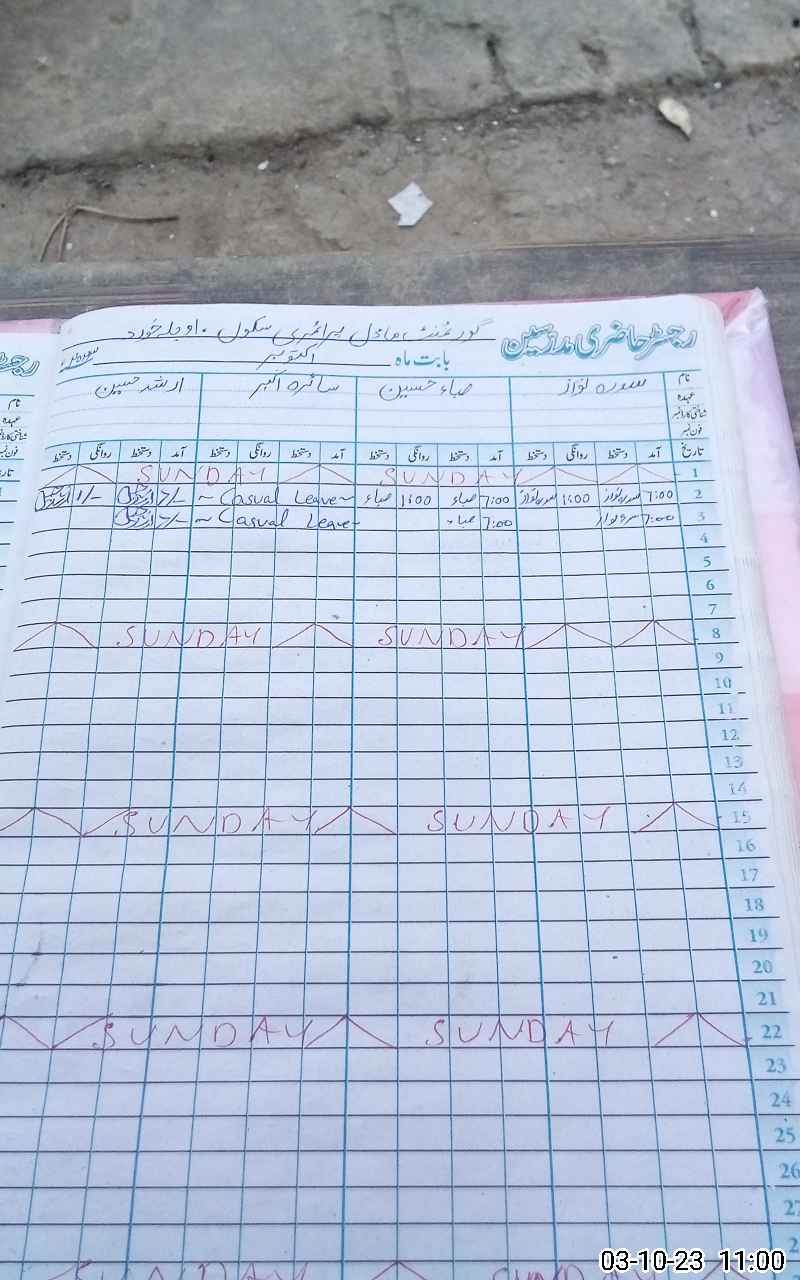 رجسٹر حاضری مدرسین گورنمنٹ ماڈل پرائمری سکول، اوجلہ خورد
بابت ماہ اکتوبر
نام سدرہ نواز صباء حسین سائرہ اکبر ارشد حسین
عہدہ
شناختی کارڈ نمبر
فون نمبر
تاریخ آمد دستخط روانگی دستخط آمد دستخط روانگی دستخط آمد دستخط روانگی دستخط آمد دستخط روانگی دستخط
1 SUNDAY SUNDAY
2 7:00 سدرہ نواز 1:00 سدرہ نواز 7:00 صباء 1:00 صباء ~ Casual Leave ~ 7/- 1/-
3 7:00 سدرہ نواز 7:00 صباء ~ Casual Leave ~ 7/-
4
5
6
7
8 SUNDAY SUNDAY
9
10
11
12
13
14
15 SUNDAY SUNDAY
16
17
18
19
20
21
22 SUNDAY SUNDAY
23
24
25
26
27
SUNDAY SUNDA
03-10-23 11:00